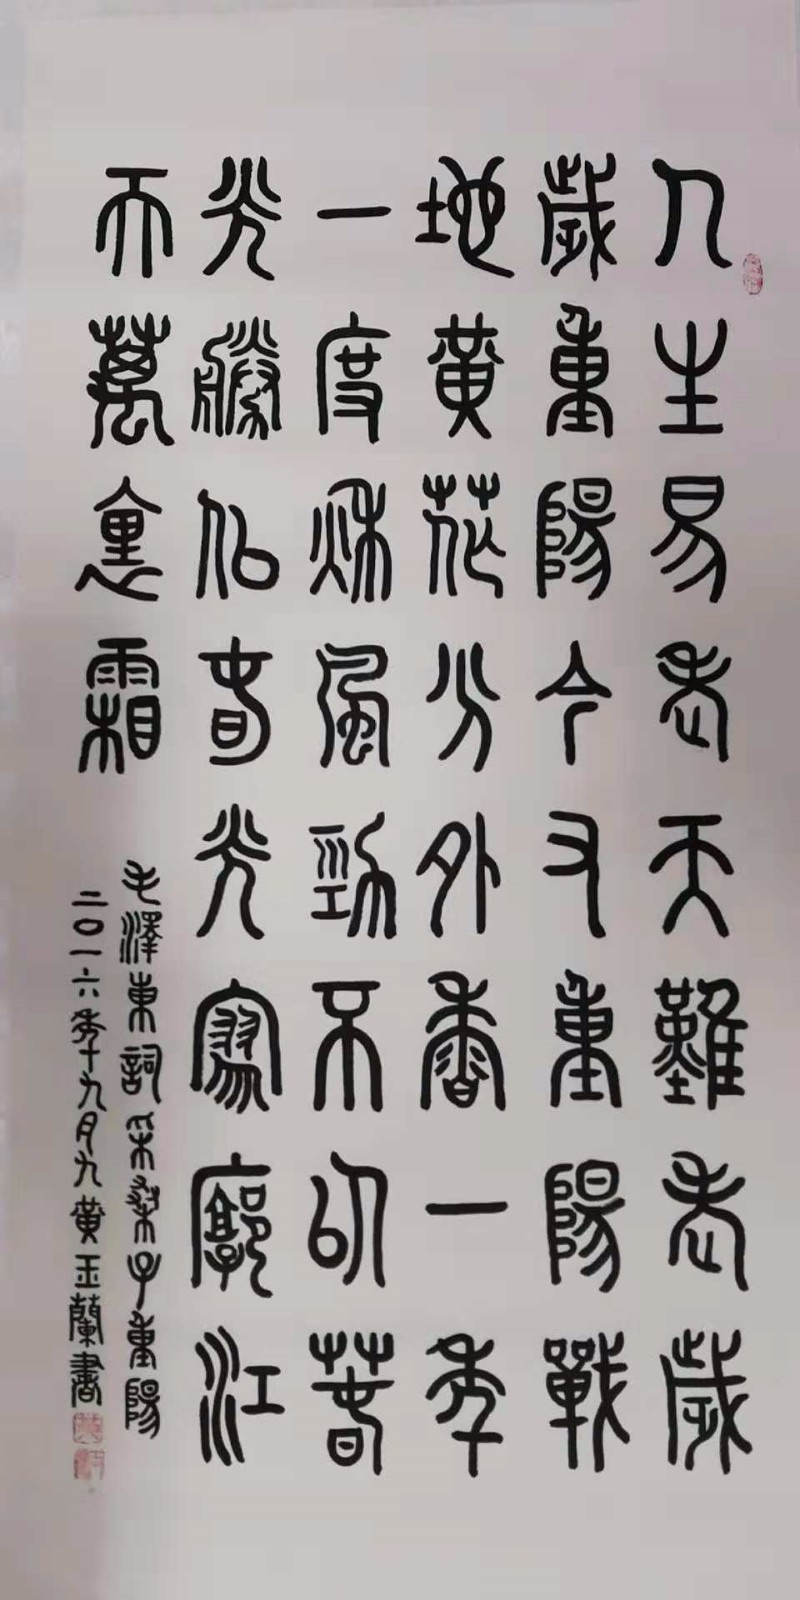 人生易老天難老歲
歲重陽今又重陽戰
地黄花分外香一年
一度秋風勁不似春
光勝似春光寥廓江
天萬裏霜
毛澤東詞采桑子重陽
二〇一六年十九月九黄玉蘭書